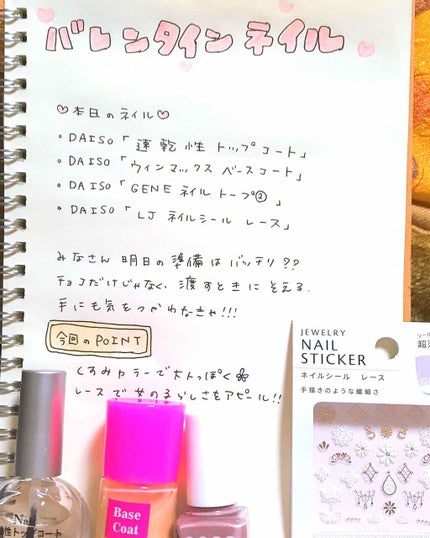 バレンタインネイル
♡本日のネイル♡
◦DAISO「速乾性トップコート」
◦DAISO「ウィンマックス ベースコート」
◦DAISO「GENE ネイル トープ②」
◦DAISO「LJ ネイルシール レース」
みなさん明日の準備はバッチリ??
チョコだけじゃなく、渡すときにそえる
手にも気をつかわなきゃ!!!
今回のPOINT
くすみカラーで大人っぽく
レースで女の子らしさをアピール!!
JEWELRY
NAIL
STICKER
ネイルシール レース
手描きのような繊細さ
Base
Coat
Nail
性トップコート